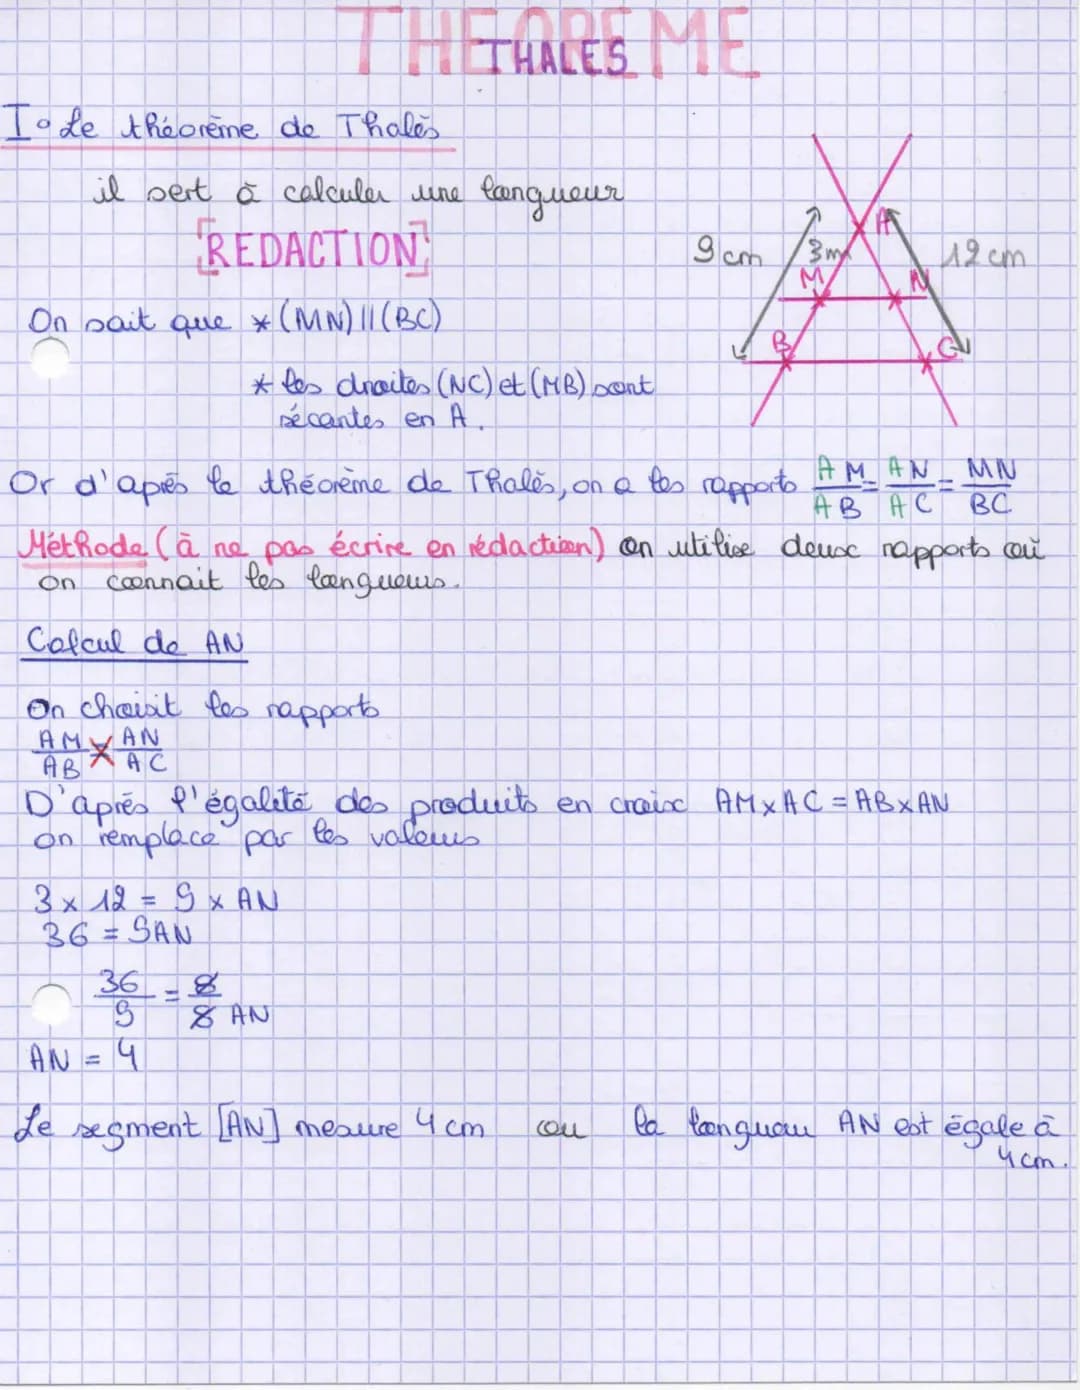 THEOREME
THALES
I° Le théorème de Thalès
il sert à calculer une longueur
[REDACTION]
9 cm
3m
A
12 cm
M
N
B
C
On sait que * (MN) || (BC)
* les droites (NC) et (MB) sont
sécantes en A.
Or d'après le théorème de Thalès, on a les rapports AM/AB = AN/AC = MN/BC
Méthode (à ne pas écrire en rédaction) on utilise deux rapports où
on connait les longueurs.
Calcul de AN
On choisit les rapports
AM/AB × AN/AC
D'après l'égalité des produits en croix AM×AC = AB×AN
on remplace par les valeurs
3 × 12 = 9 × AN
36 = 9AN
36/9 = 8/8 AN
AN = 4
Le segment [AN] mesure 4 cm ou la longueur AN est égale à
4 cm.